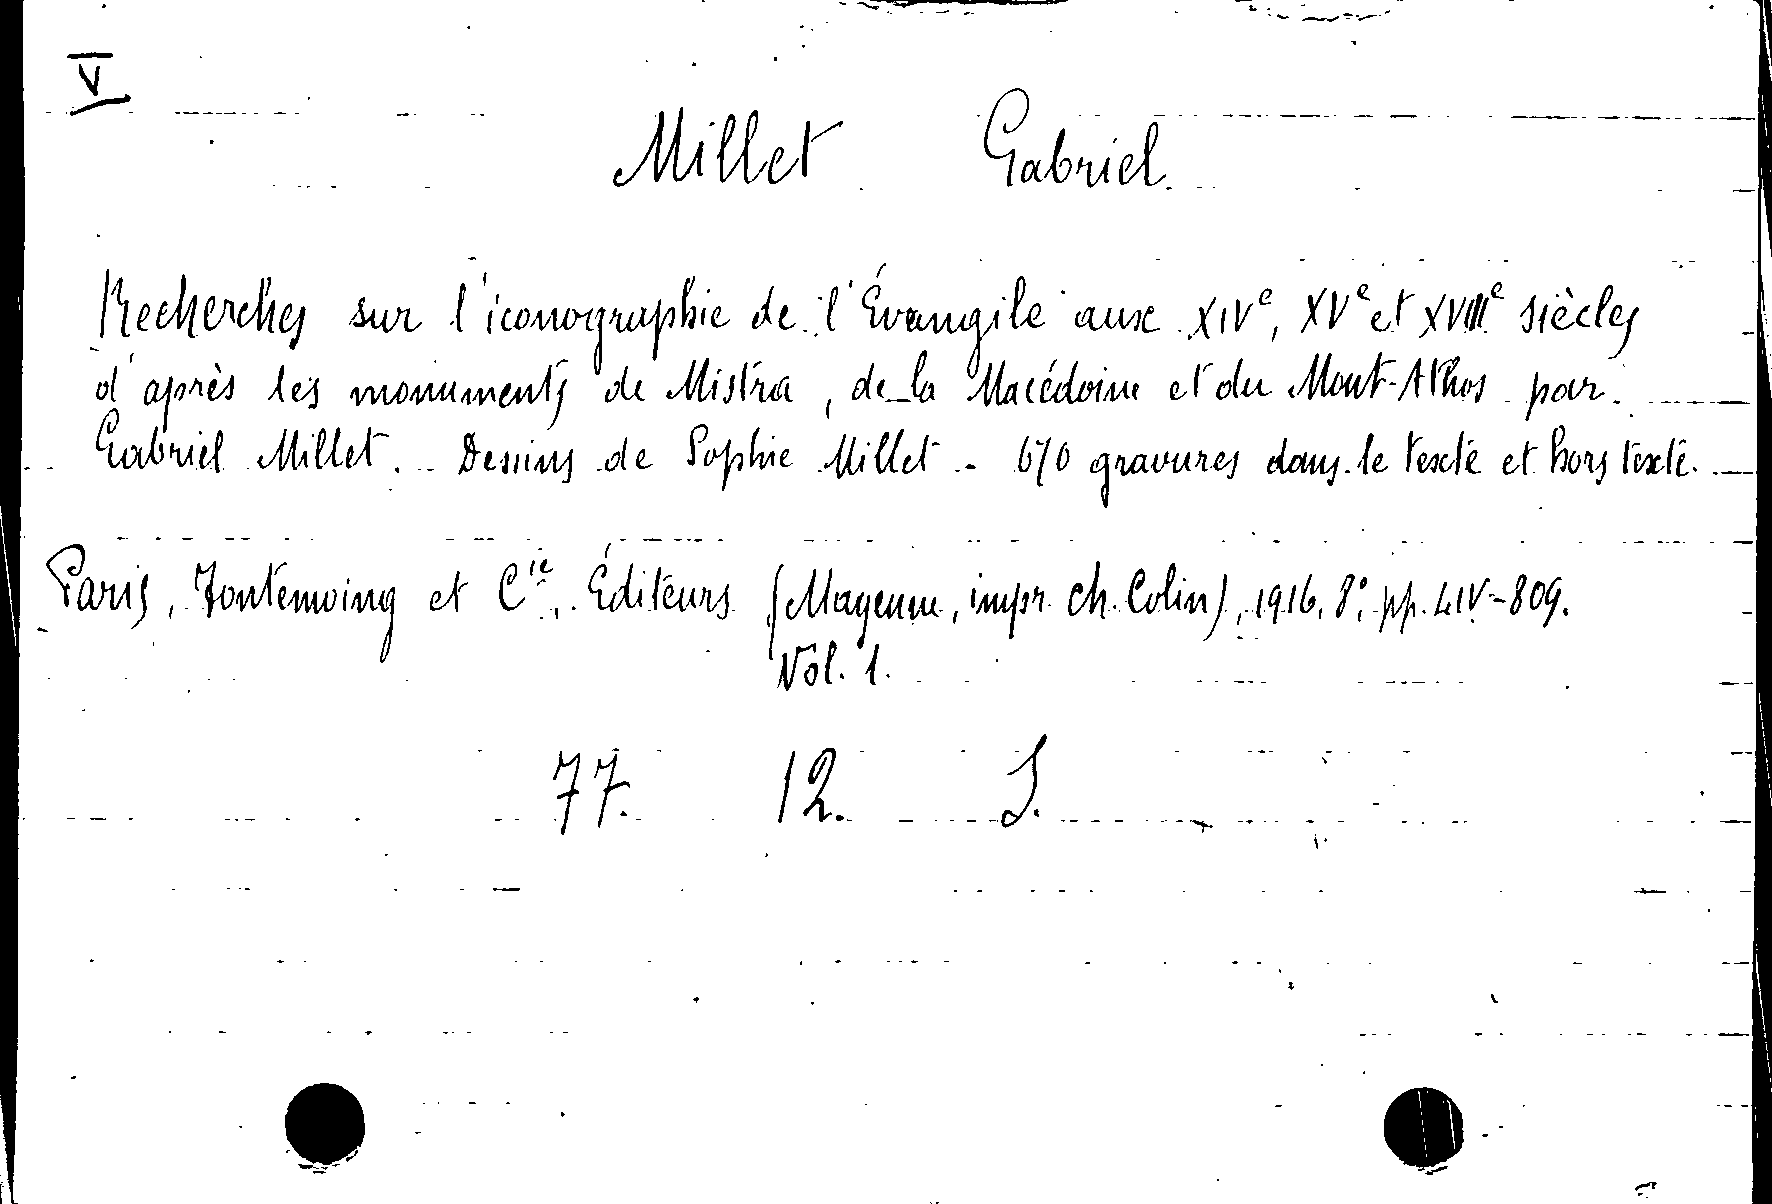 V
Millet Gabriel.
Recherches sur l'iconographie de l'Évangile aux XIVe, XVe et XVIIIe siècles
d'après les monuments de Mistra, de la Macédoine et du Mont-Athos par
Gabriel Millet. Dessins de Sophie Millet - 670 gravures dans le texte et hors texte.
Paris, Fontemoing et Cie, Éditeurs (Mayenne, impr. Ch. Colin), 1916, 8°, pp. LIV-809.
Vol. 1.
77. 12. J.